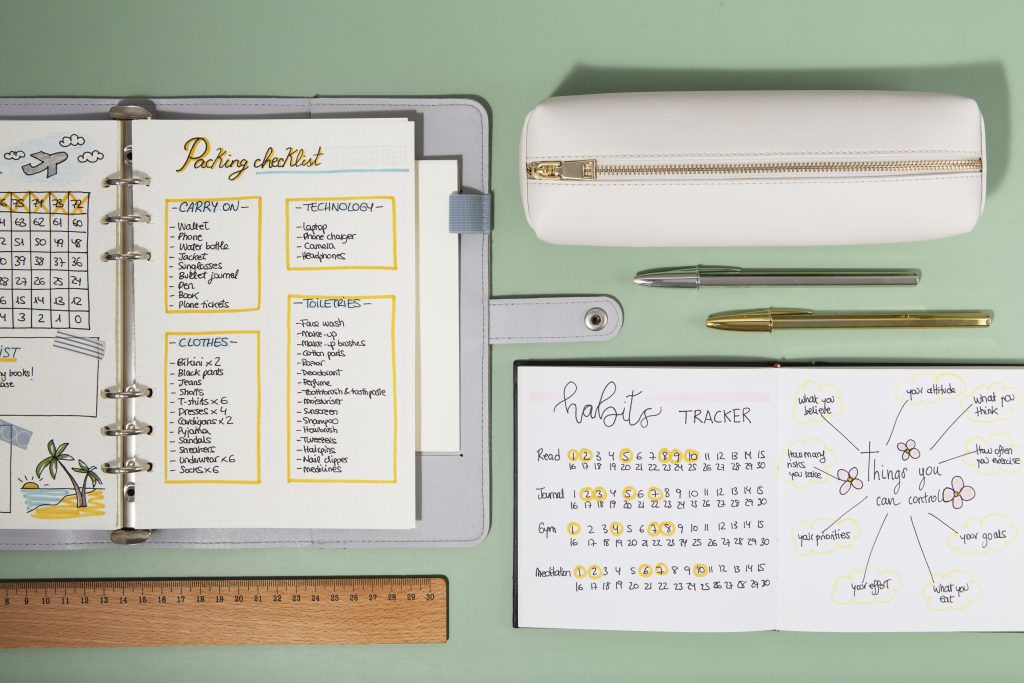 75 74 73 72
64 63 62 61 60
52 51 50 49 48
39 38 37 36
28 27 26 25 24
15 14 13 12
4 3 2 1 0
my books!
Packing checklist
- CARRY ON -
- Wallet
- Phone
- Water bottle
- Jacket
- Sunglasses
- Bullet journal
- Pen
- Book
- Plane tickets
- CLOTHES -
- Bikini x 2
- Black pants
- Jeans
- Shorts
- T-shirts x 6
- Dresses x 4
- Cardigans x 2
- Pyjama
- Sandals
- Sneakers
- Underwear x 6
- Socks x 6
- TECHNOLOGY -
- Laptop
- Phone charger
- Camera
- Headphones
- TOILETRIES -
- Face wash
- Make-up
- Make-up brushes
- Cotton pads
- Razor
- Deodorant
- Perfume
- Toothbrush & toothpaste
- Moisturiser
- Sunscreen
- Shampoo
- Hairwash
- Tweezers
- Hairpins
- Nail clipper
- medicines
8 9 10 11 12 13 14 15 16 17 18 19 20 21 22 23 24 25 26 27 28 29 30
habits TRACKER
Read 1 2 3 4 5 6 7 8 9 10 11 12 13 14 15
16 17 18 19 20 21 22 23 24 25 26 27 28 29 30
Journal 1 2 3 4 5 6 7 8 9 10 11 12 13 14 15
16 17 18 19 20 21 22 23 24 25 26 27 28 29 30
Gym 1 2 3 4 5 6 7 8 9 10 11 12 13 14 15
16 17 18 19 20 21 22 23 24 25 26 27 28 29 30
Meditation 1 2 3 4 5 6 7 8 9 10 11 12 13 14 15
16 17 18 19 20 21 22 23 24 25 26 27 28 29 30
what you
believe
your attitude
what you
think
How many
risks
you take
How often
you exercise
Things you
can control
your priorities
your goals
your effort
what you
eat